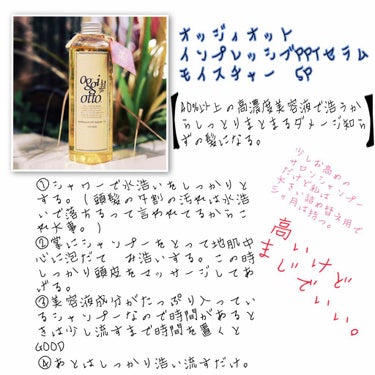 oggi
otto
オッジィオット
インプレッシブPPTセラム
モイスチャー SP
【40%以上の高濃度美容液で洗うか
らしっとりまとまるダメージ知ら
ずの髪になる。】
少しお高めの
サロンシャンプー
だけど私は
大きい詰め替え用で
ヶ月は持つ。
高いけど
まじで
いい。
①シャワーで水洗いをしっかりと
する。(頭髪の千割の汚れは水洗
いで落ちるって言われてるからこ
れ大事。)
②掌にシャンプーをとって地肌中
心に泡だて お洗いする。この時
しっかり頭皮をマッサージしてあ
げる。
③美容液成分がたっぷり入ってい
るシャンプーなので時間があると
きは少し流すまで時間を置くと
GOOD
④あとはしっかり洗い流すだけ。